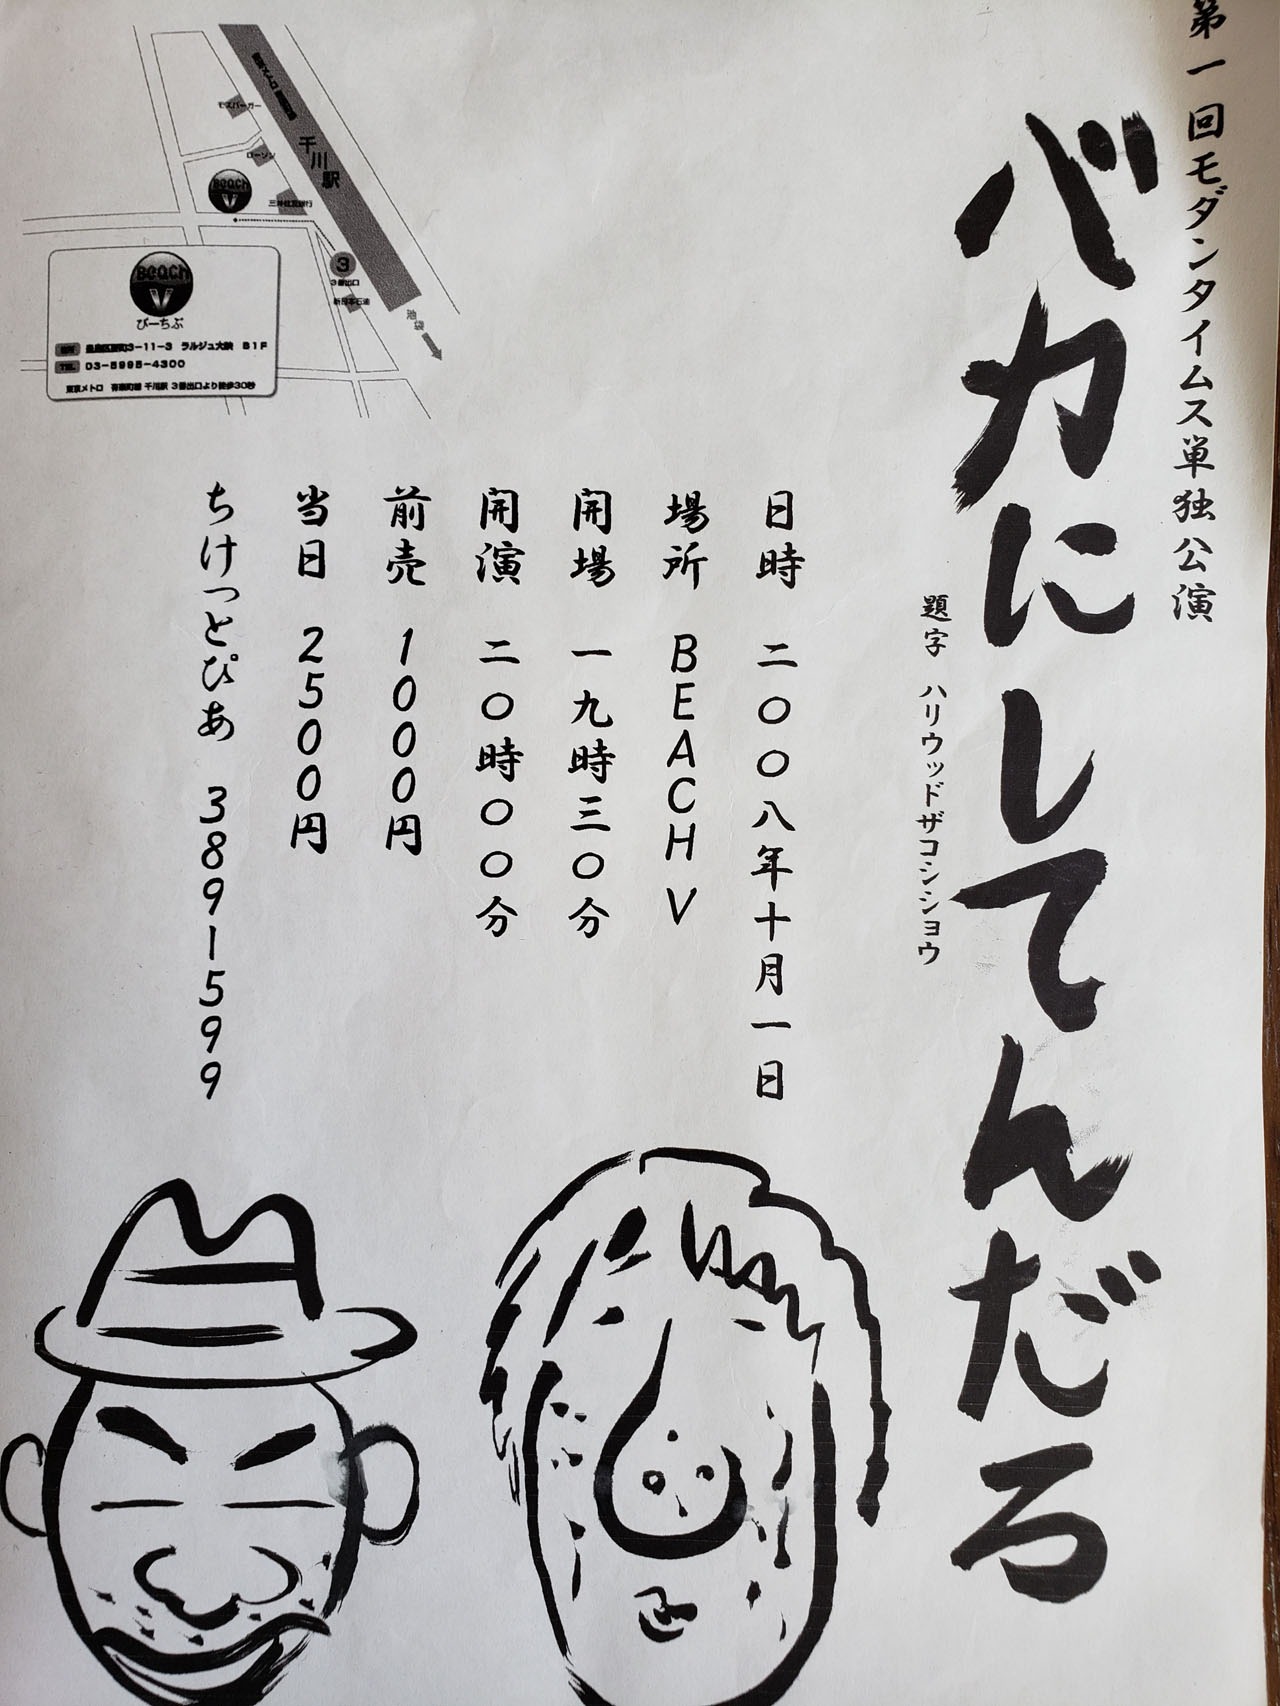 第一回モダンタイムス単独公演
バカにしてんだろ
題字 ハリウッドザコシショウ
日時 二〇〇八年十月一日
場所 BEACH V
開場 一九時三〇分
開演 二〇時〇〇分
前売 1000円
当日 2500円
ちけっとぴあ 389-599
モスバーガー
ローソン
千川駅
BEACH
V
三井住友銀行
3
3番出口
新日本石油
池袋
BEACH
V
びーちぶ
3-11-3 ラルジュ大映 B1F
TEL 03-5995-4300
東京メトロ 有楽町線 千川駅 3番出口より徒歩30秒